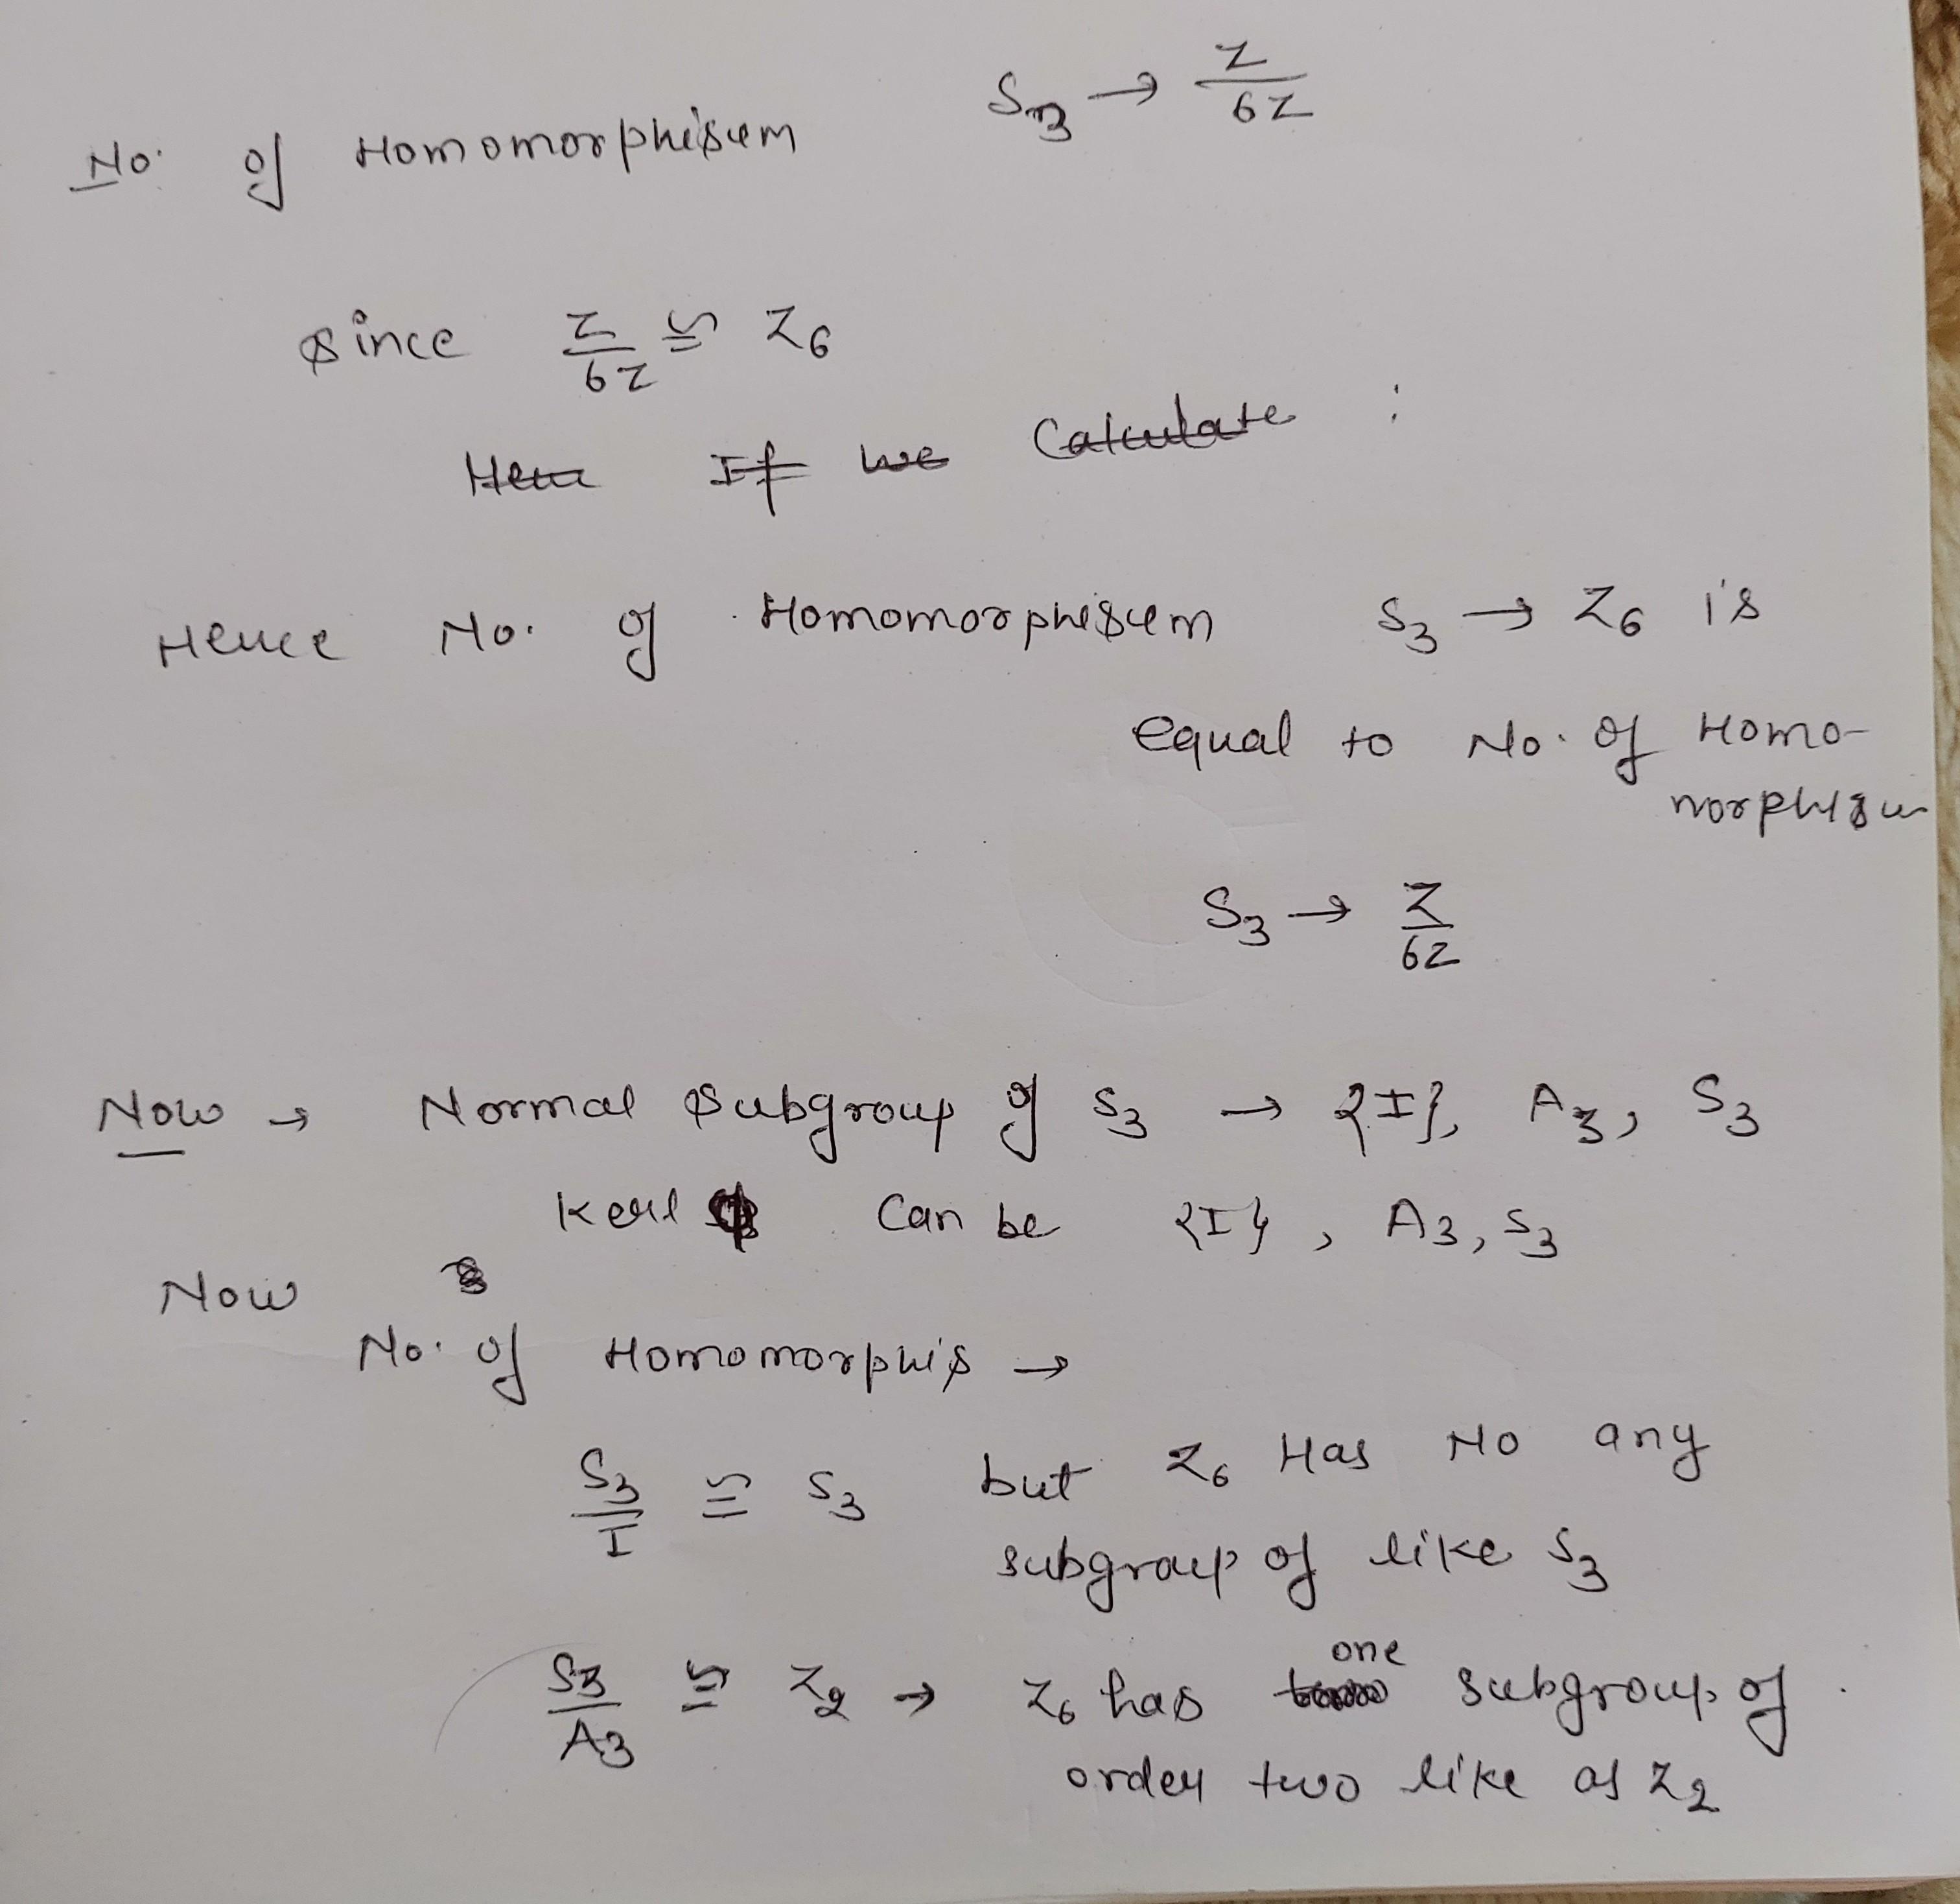 No. of Homomorphisem S3 → Z/6Z
since Z/6Z ≅ Z6
If we Calculate :
Hence No. of Homomorphisem S3 → Z6 is
equal to No. of Homo-
morphism
S3 → Z/6Z
Now → Normal Subgroup of S3 → {I}, A3, S3
Kerl ϕ Can be {I}, A3, S3
Now
No. of Homomorphis →
S3/I ≅ S3 but Z6 Has No any
subgroup of like S3
one
S3/A3 ≅ Z2 → Z6 has subgroup of
order two like as Z2